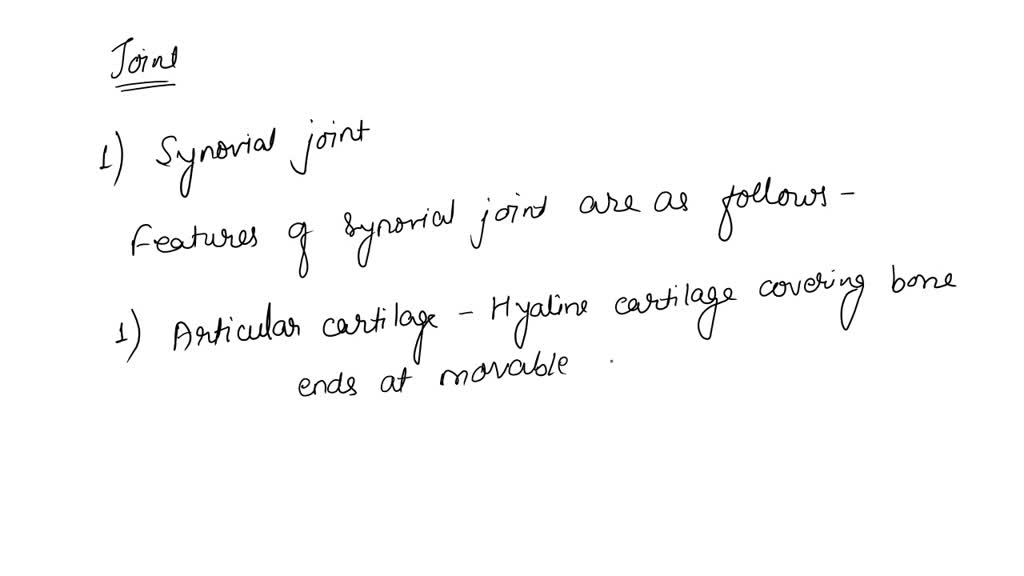 Joint
1) Synovial joint
Features of synovial joint are as follows -
1) Articular cartilage - Hyaline cartilage covering bone
ends at movable